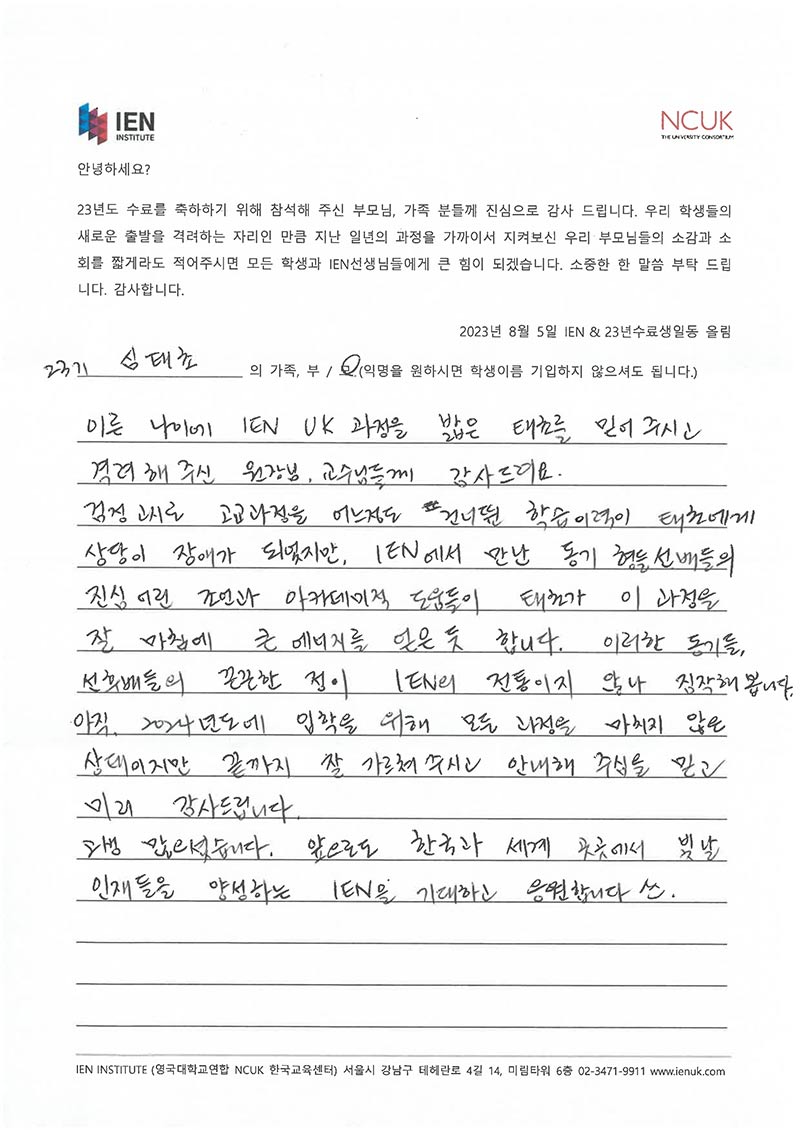 IEN
INSTITUTE
NCUK
THE UNIVERSITY CONSORTIUM
안녕하세요?
23년도 수료를 축하하기 위해 참석해 주신 부모님, 가족 분들께 진심으로 감사 드립니다. 우리 학생들의
새로운 출발을 격려하는 자리인 만큼 지난 일년의 과정을 가까이서 지켜보신 우리 부모님들의 소감과 소
회를 짧게라도 적어주시면 모든 학생과 IEN선생님들에게 큰 힘이 되겠습니다. 소중한 한 말씀 부탁 드립
니다. 감사합니다.
2023년 8월 5일 IEN & 23년수료생일동 올림
23기 심태초 의 가족, 부 / 모 (익명을 원하시면 학생이름 기입하지 않으셔도 됩니다.)
이른 나이에 IEN UK 과정을 밟은 태초를 믿어 주시고
격려해 주신 원장님, 교수님들께 감사드려요.
검정고시로 고교과정을 어느정도 건너뛴 학습이력이 태초에게
상당이 장애가 되었지만, IEN에서 만난 동기 형들선배들의
진심어린 조언과 아카데미적 도움들이 태초가 이 과정을
잘 마침에 큰 에너지를 얻은 듯 합니다. 이러한 동기들,
선후배들의 끈끈한 점이 IEN의 전통이지 않나 짐작해 봅니다.
아직, 2024년도에 입학을 위해 모든 과정을 마치지 않은
상태이지만 끝까지 잘 가르쳐 주시고 안내해 주심을 믿고
미리 감사드립니다.
고생 많으셨습니다. 앞으로도 한국과 세계 곳곳에서 빛날
인재들을 양성하는 IEN을 기대하고 응원합니다
IEN INSTITUTE (영국대학교연합 NCUK 한국교육센터) 서울시 강남구 테헤란로 4길 14, 미림타워 6층 02-3471-9911 www.ienuk.com